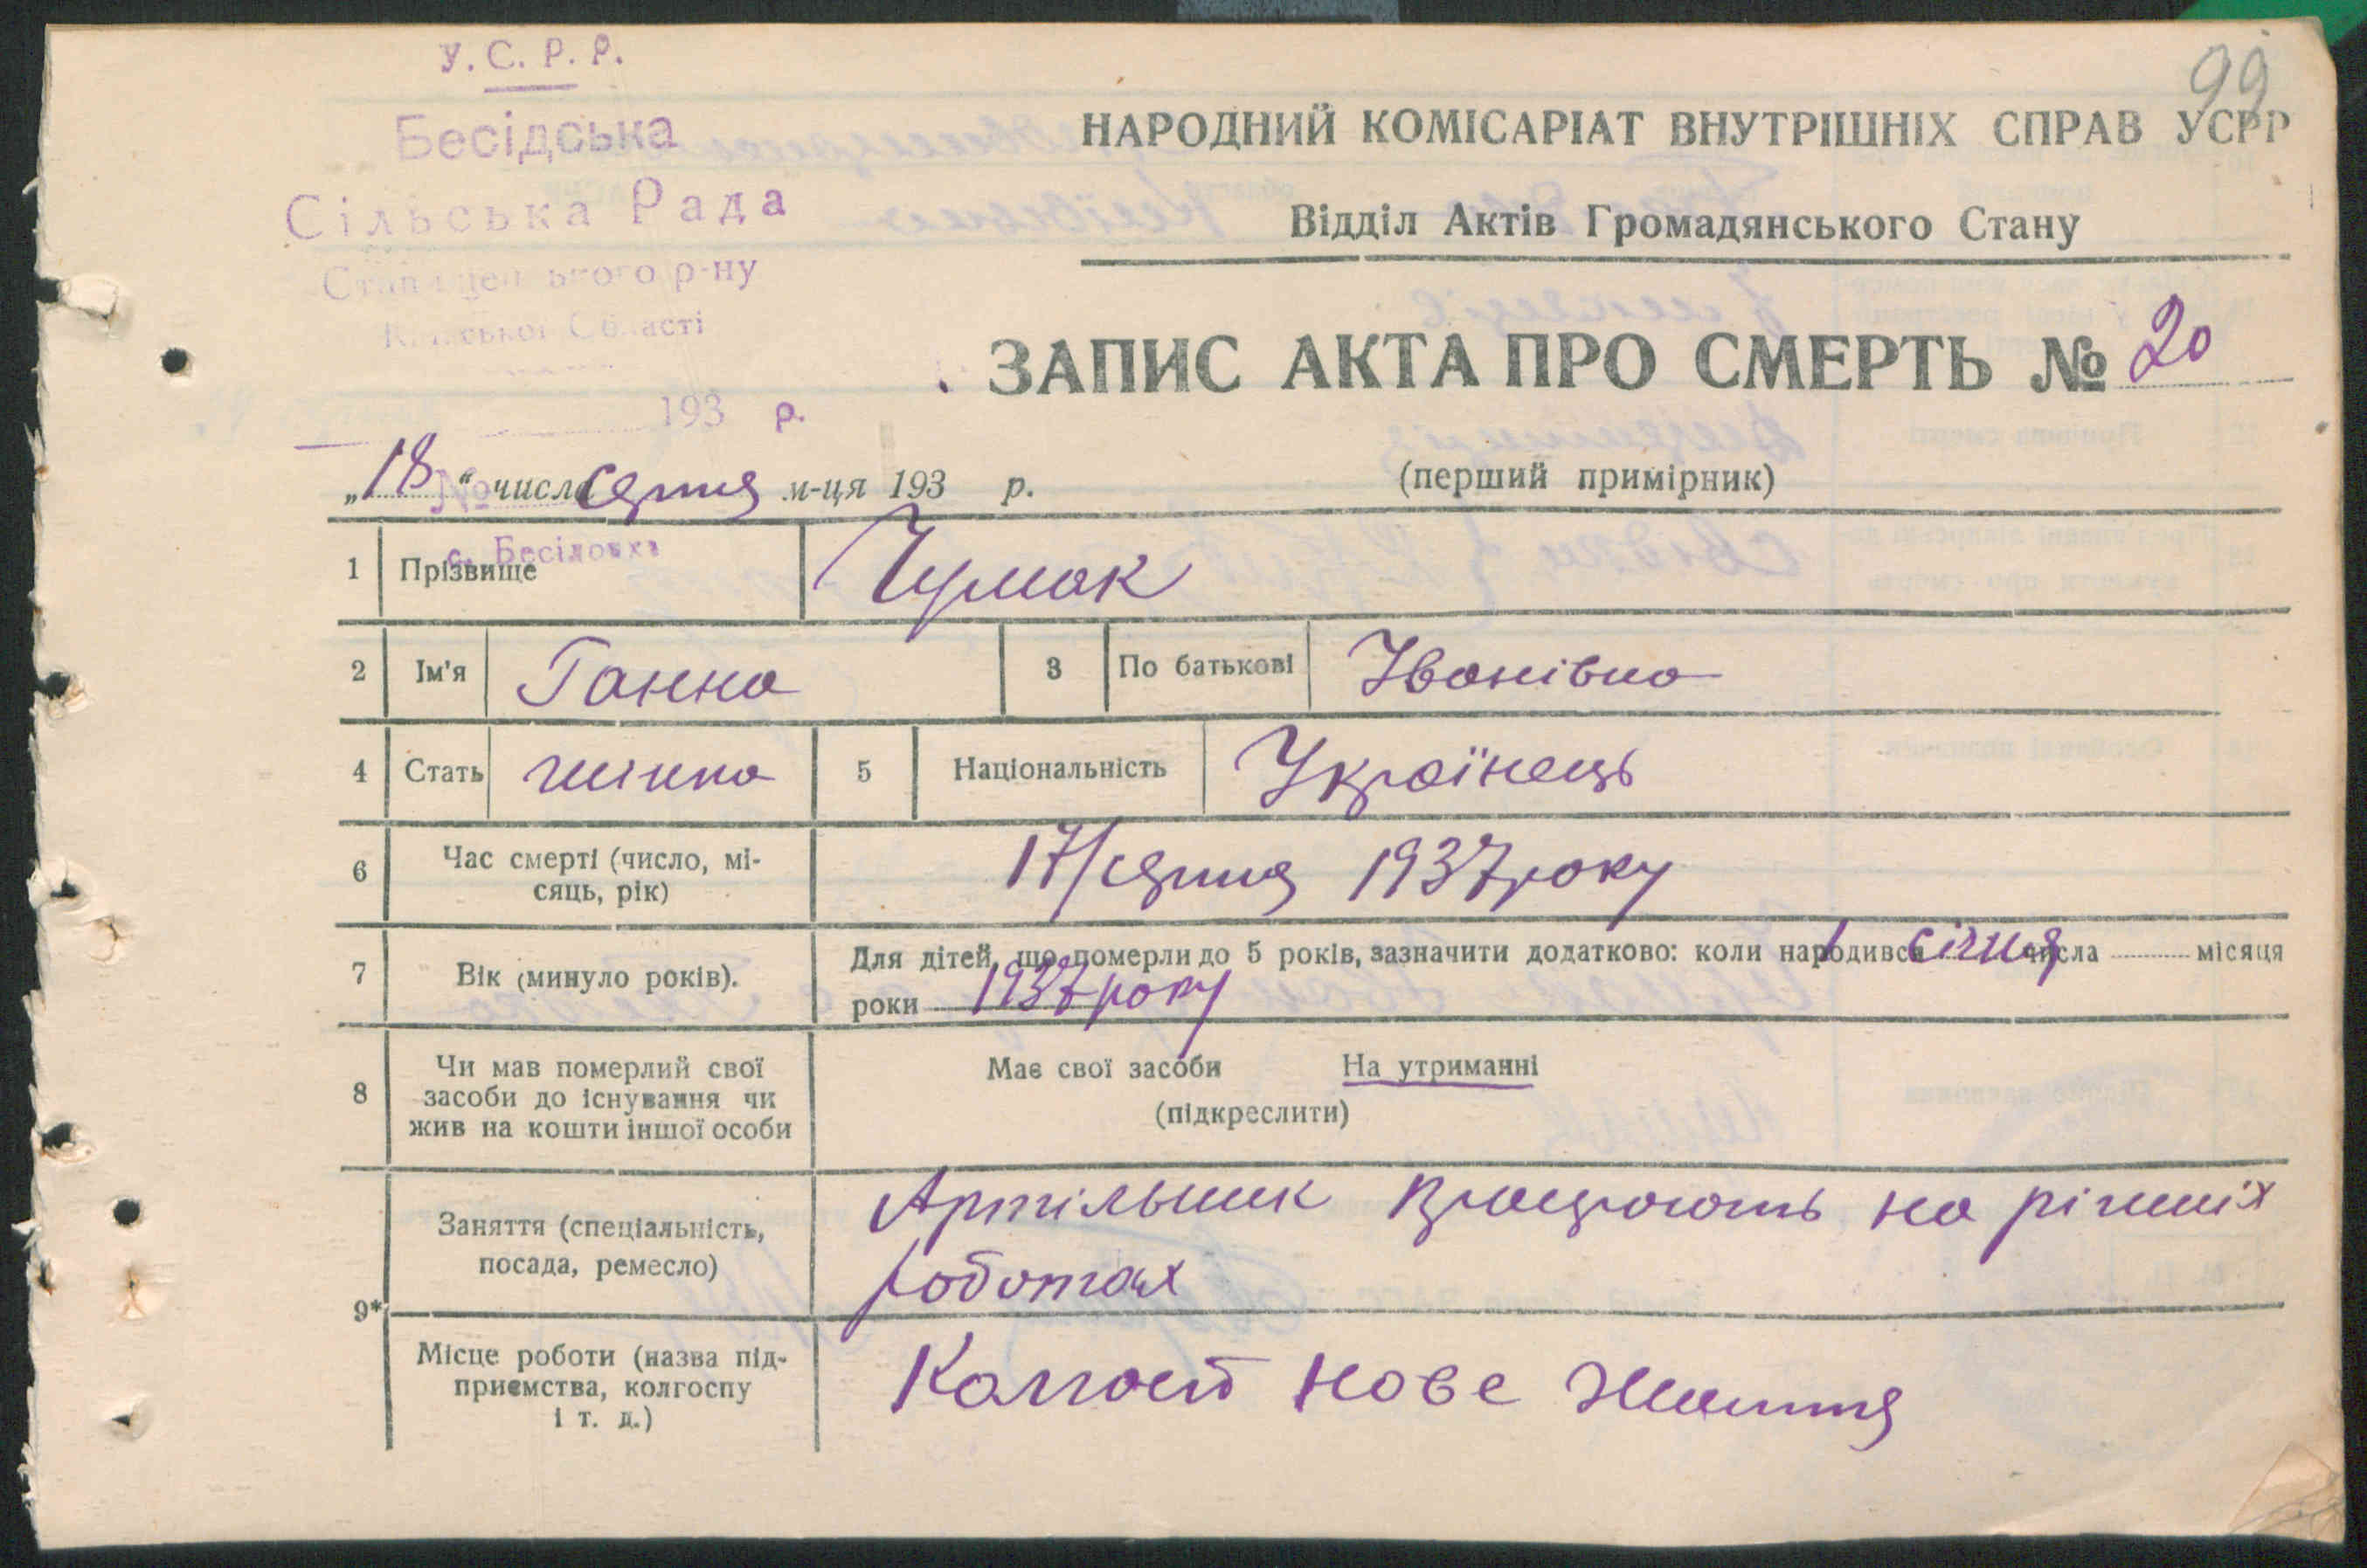 99
У. С. Р. Р.
Бесідська
Сільська Рада
р-ну
Області
193 р.
№
с. Бесідовка
НАРОДНИЙ КОМІСАРІАТ ВНУТРІШНІХ СПРАВ УСРР
Відділ Актів Громадянського Стану
ЗАПИС АКТА ПРО СМЕРТЬ № 20
(перший примірник)
„18“ числа серпня м-ця 193 р.
1 Прізвище Чумак
2 Ім'я Ганна 3 По батькові Іванівна
4 Стать жінка 5 Національність Українець
6 Час смерті (число, мі-
сяць, рік) 17/серпня 1937 року
7 Вік (минуло років). Для дітей, що померли до 5 років, зазначити додатково: коли народився 1 січня числа місяця
роки 1937 року
8 Чи мав померлий свої
засоби до існування чи
жив на кошти іншої особи
Має свої засоби На утриманні
(підкреслити)
9*
Заняття (спеціальність,
посада, ремесло)
Артільник працюють на різних
роботах
Місце роботи (назва під-
приємства, колгоспу
і т. д.)
Колгосп Нове Життя